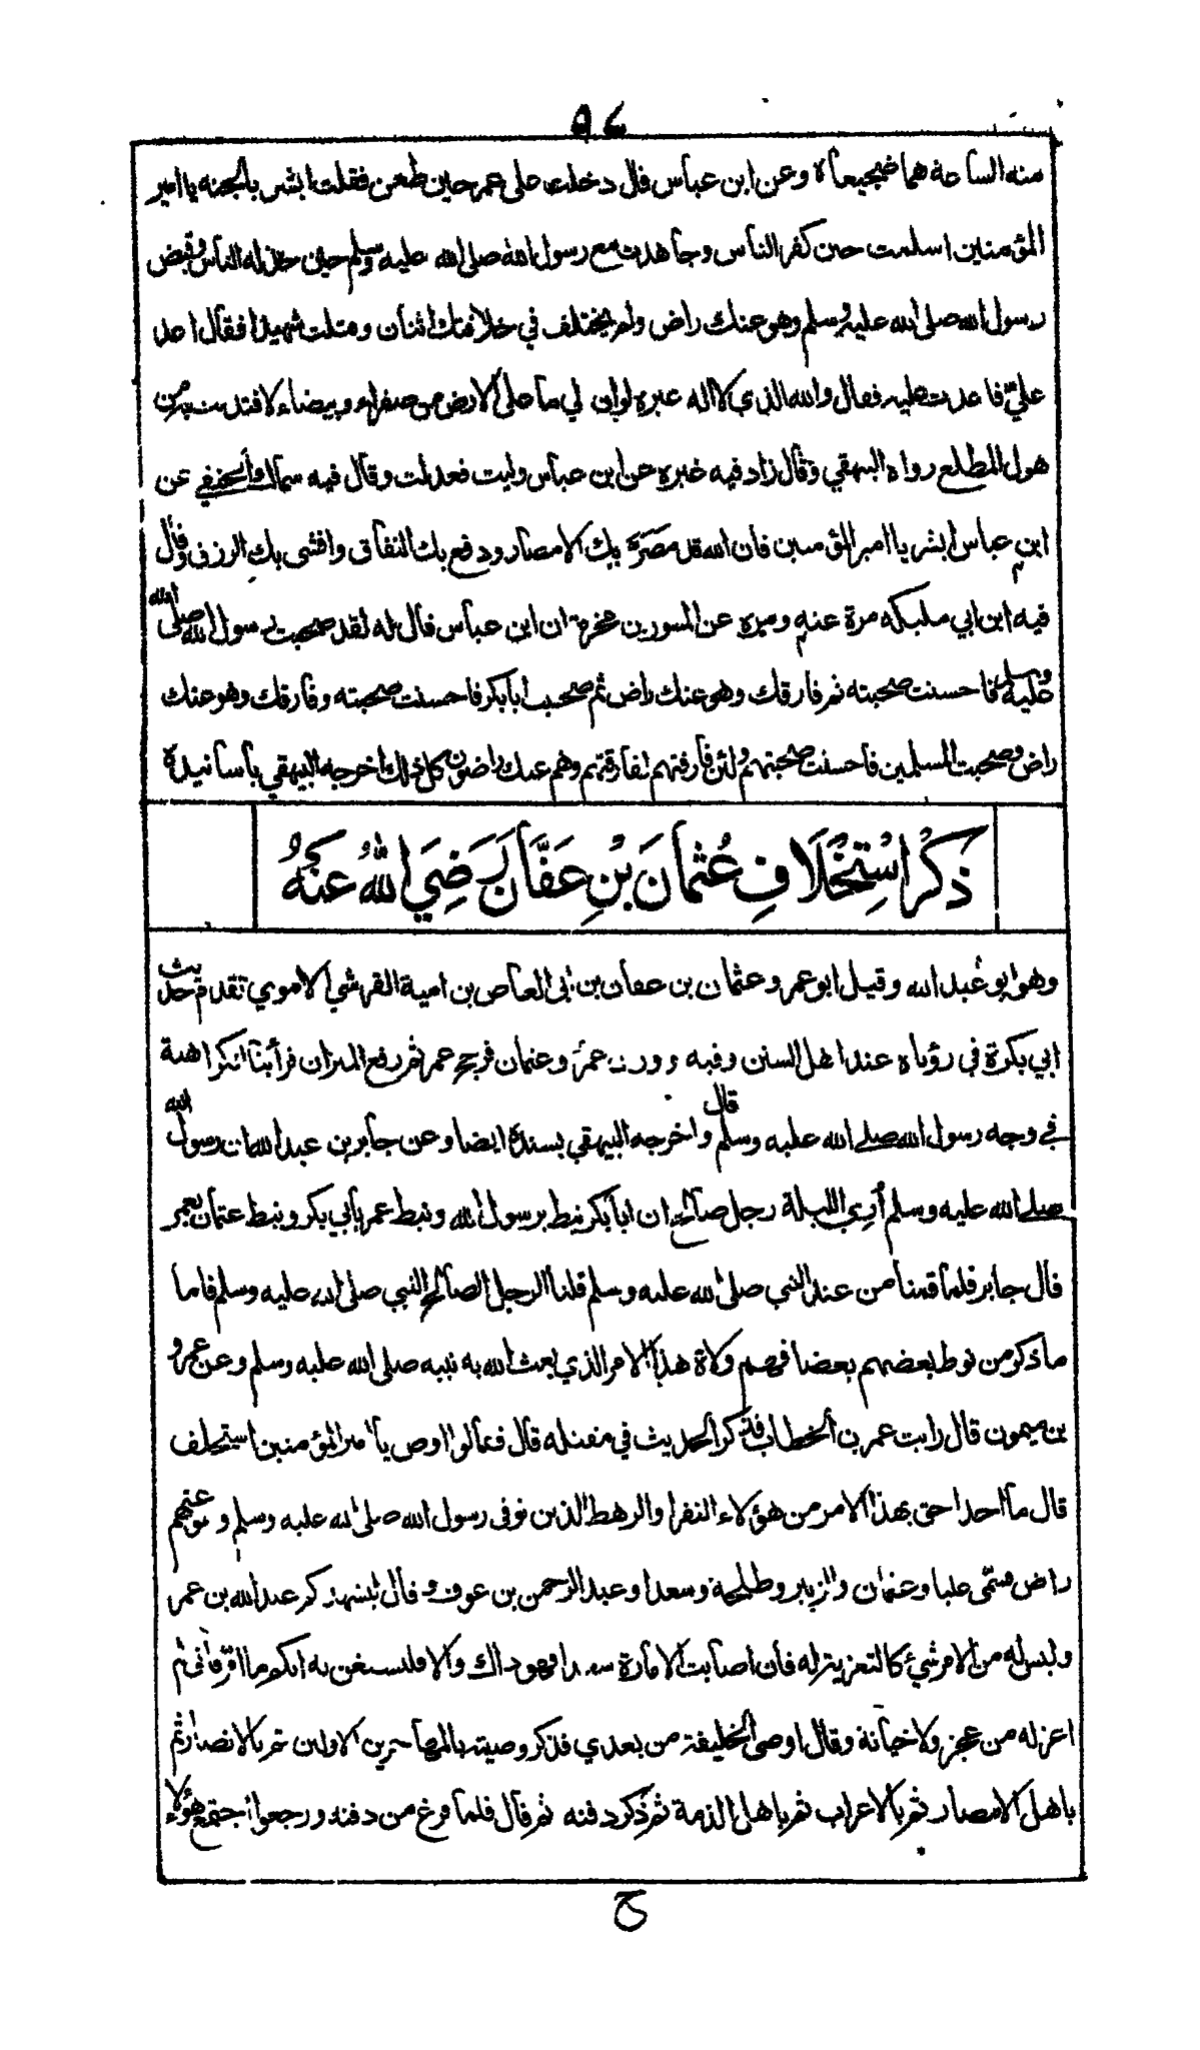 ٥٤
منه الساعة هما ضجيعاه وعن ابن عباس قال دخلت على عمر حين طعن فقلت ابشر بالجنه يا امير
المؤمنين اسلمت حين كفر الناس وجاهدت مع رسول الله صلى الله عليه وسلم حين خذله الناس وقبض
رسول الله صلى الله عليه وسلم وهو عنك راض ولم يختلف في خلافتك اثنان وقتلت شهيدا فقال اعد
علي فاعدت عليه فقال والله الذي لا اله غيره لو ان لي ما على الارض من صفراء وبيضاء لافتديت به من
هول المطلع رواه البيهقي وقال زاد فيه غيره عن ابن عباس وليت فعدلت وقال فيه سماك الحنفي عن
ابن عباس ابشر يا امير المؤمنين فان الله قد مصر بك الامصار ودفع بك النفاق وافشى بك الرزق وقال
فيه ابن ابي مليكه مرة عنه ومره عن المسور بن مخرمة ان ابن عباس قال له لقد صحبت رسول الله صلى الله
عليه وسلم فاحسنت صحبته ثم فارقك وهو عنك راض ثم صحبت ابا بكر فاحسنت صحبته وفارقك وهو عنك
راض وصحبت المسلمين فاحسنت صحبتهم ولئن فارقتهم لتفارقنهم وهم عنك راضون كل ذلك اخرجه البيهقي باسانيده
ذِكْرُ اسْتِخْلَافِ عُثمانَ بْنِ عَفَّانَ رَضِيَ اللهُ عَنْهُ
وهو ابو عبد الله وقيل ابو عمرو عثمان بن عفان بن ابي العاص بن امية القرشي الاموي تقدم حديث
ابي بكرة في رؤياه عند اهل السنن وفيه ووزن عمر وعثمان فرجح عمر ثم رفع الميزان فرأينا الكراهة
في وجه رسول الله صلى الله عليه وسلم قال واخرجه البيهقي بسنده ايضا وعن جابر بن عبد الله ان رسول الله
صلى الله عليه وسلم أري الليلة رجل صالح ان ابا بكر نيط برسول الله ونيط عمر بأبي بكر ونيط عثمان بعمر
قال جابر فلما قمنا من عند النبي صلى الله عليه وسلم قلنا الرجل الصالح النبي صلى الله عليه وسلم فاما
ما ذكر من نوط بعضهم بعضا فهم ولاة هذا الامر الذي بعث الله به نبيه صلى الله عليه وسلم وعن عمرو
بن ميمون قال رايت عمر بن الخطاب فذكر الحديث في مقتله قال فقالوا اوص يا امير المؤمنين استخلف
قال ما احدا حق بهذا الامر من هؤلاء النفر او الرهط الذين توفى رسول الله صلى الله عليه وسلم وهو عنهم
راض فسمى عليا وعثمان والزبير وطلحة وسعدا وعبد الرحمن بن عوف وقال ليشهدكم عبد الله بن عمر
وليس له من الامر شيء كالتعزية له فان اصابت الامارة سعدا فهو ذاك والا فليستعن به ايكم ما امر فاني لم
اعزله من عجز ولا خيانة وقال اوصي الخليفة من بعدي فذكر وصيته بالمهاجرين الاولين ثم بالانصار ثم
باهل الامصار ثم بالاعراب ثم باهل الذمة ثم ذكر دفنه ثم قال فلما فرغ من دفنه ورجعوا اجتمع هؤلاء
ح